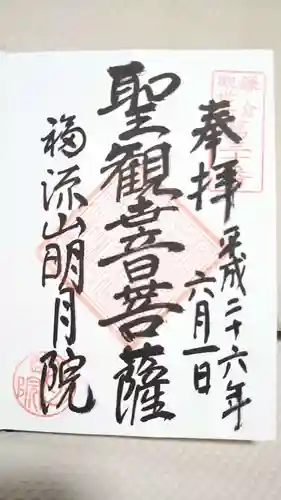 奉拝
平成二十六年
六月一日
聖観世音菩薩
福源山明月院